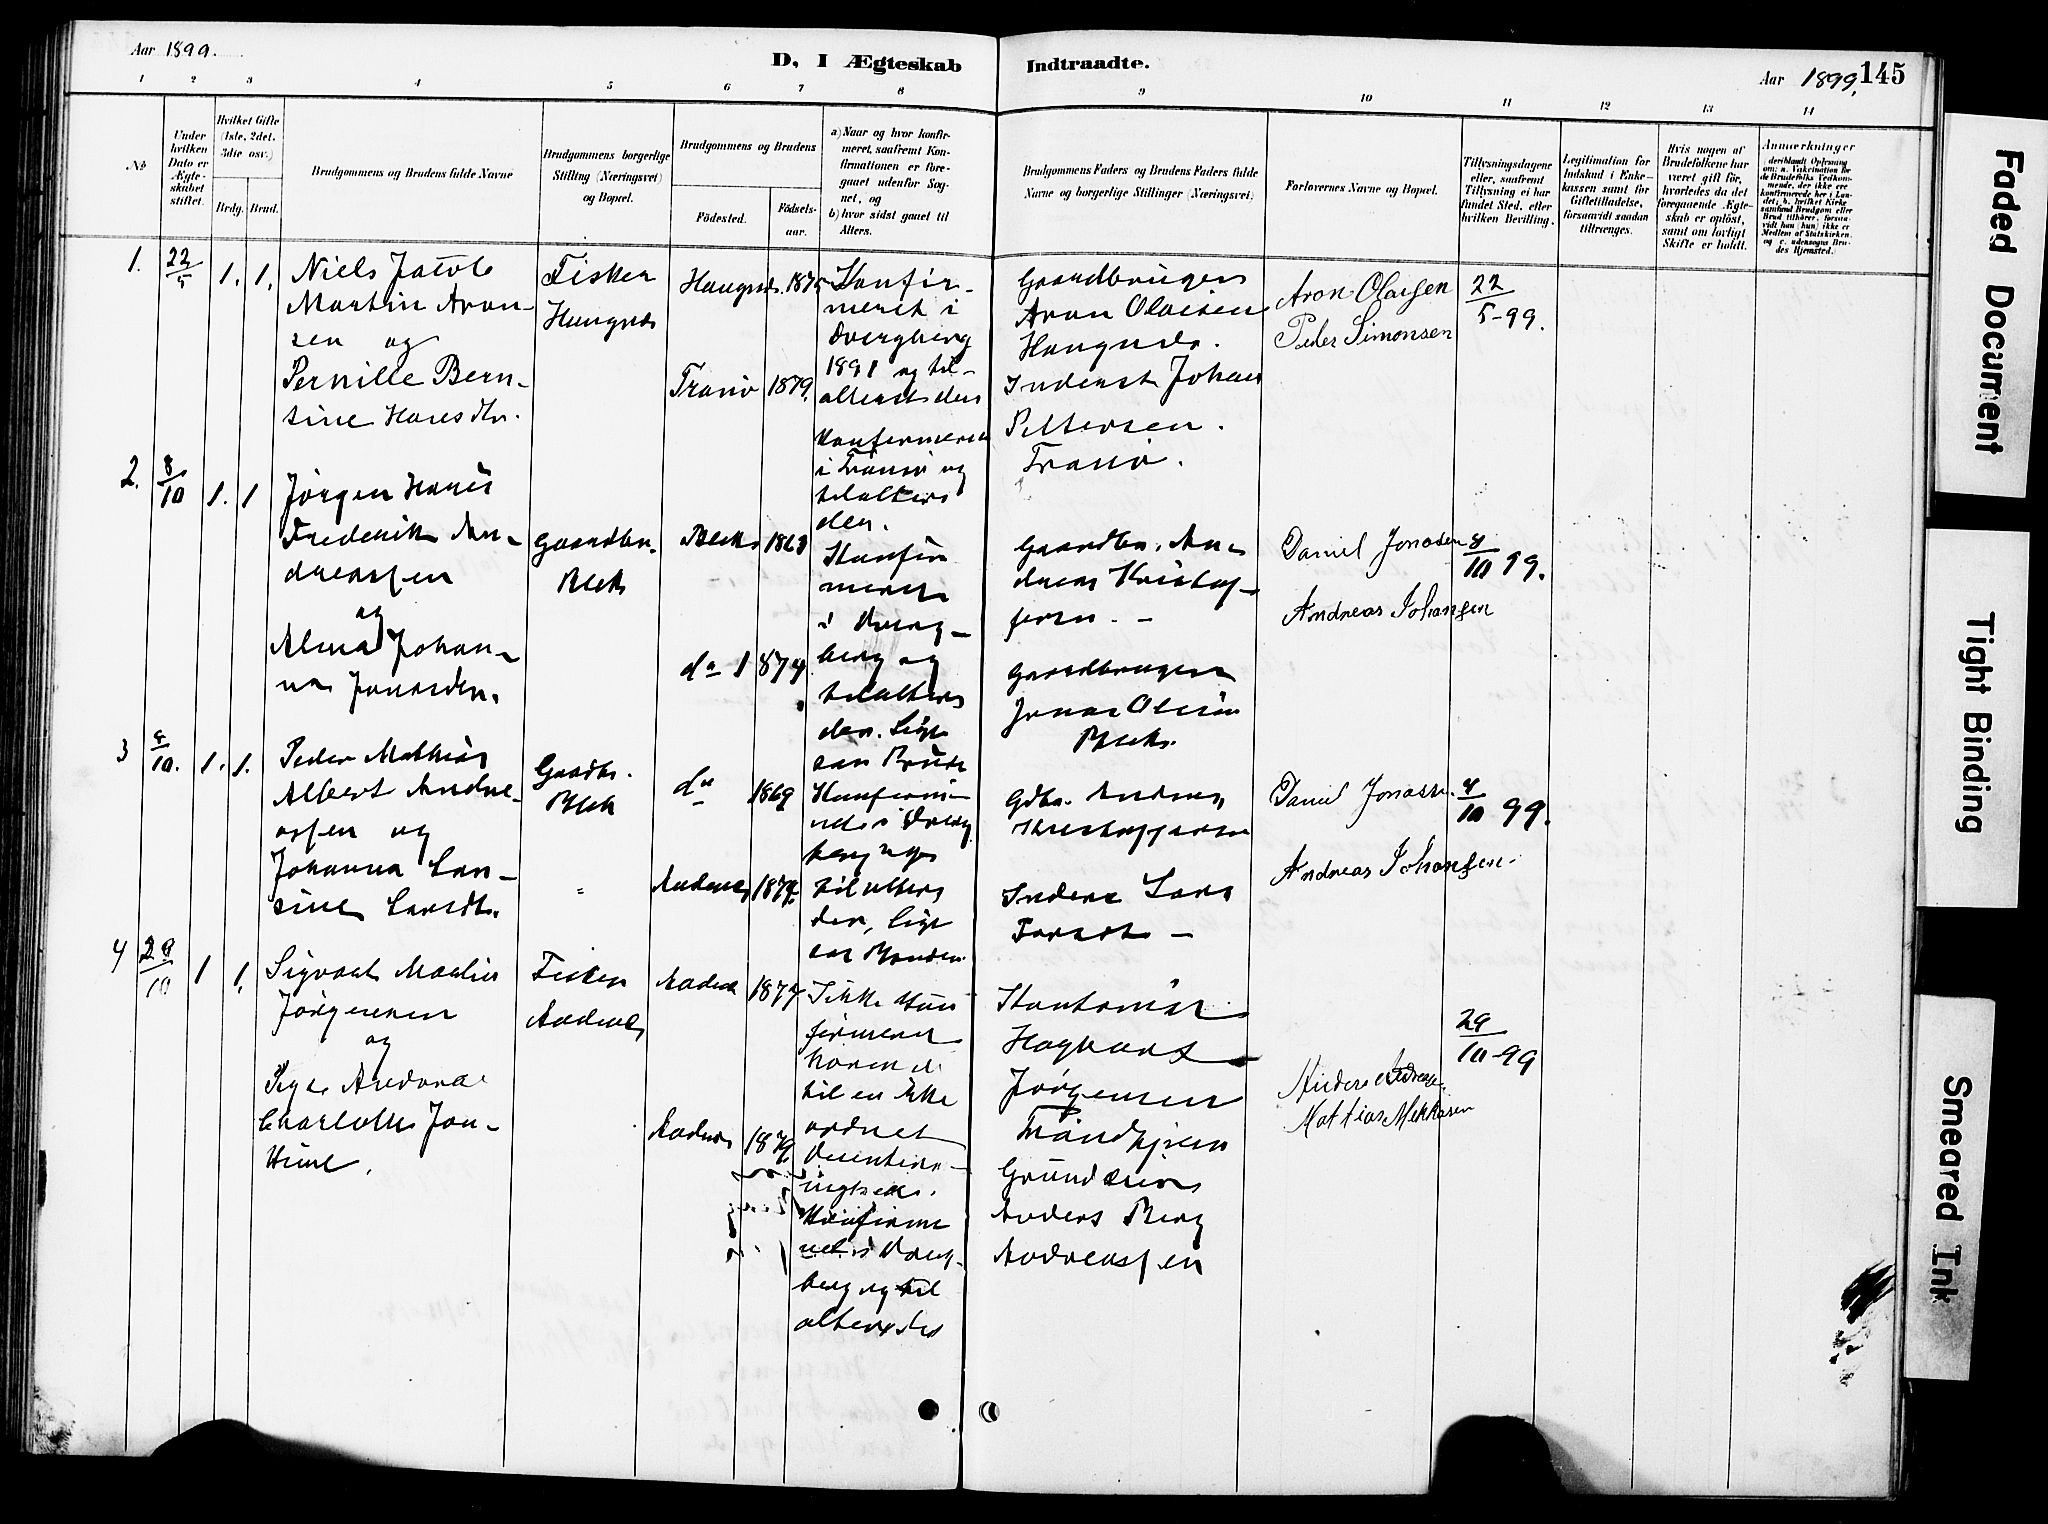 Aar 1899.
D. I Ægteskab Indtraadte.
Aar 1899. 145
1 2 3 4 5 6 7 8 9 10 11 12 13 14
№
Under hvilken Dato er Ægteskabet stiftet.
Hvilket Gifte (1ste, 2det, 3die osv.)
Brdg. Brud.
Brudgommens og Brudens fulde Navne
Brudgommens borgerlige Stilling (Næringsvei) og Bopæl.
Brudgommens og Brudens
Födested.
Födselsaar.
a) Naar og hvor konfirmeret, saafremt Konfirmationen er foregaaet udenfor Sognet, og
b) hvor sidst gaaet til Alters.
Brudgommens Faders og Brudens Faders fulde Navne og borgerlige Stillinger (Næringsvei)
Forlovernes Navne og Bopæl.
Tillysningsdagene eller, saafremt Tillysning ei har fundet Sted, efter hvilken Bevilling.
Legitimation for Indskud i Enkekassen samt for Giftetilladelse, forsaavidt saadan tiltrænges.
Hvis nogen af Brudefolkene har været gift för, hvorledes da det foregaaende Ægteskab er oplöst, samt om lovligt Skifte er holdt.
Anmærkninger
1.
22/5
1. 1.
Niels Jacob
Martin Aron-
sen og
Pernille Bern-
sine Hansdtr.
Fisker
Haugnes
Haugnes. 1875
Tranö 1879.
Konfir-
meret i
Dvergberg
1891 og til-
alters den
Konfirmeret
i Tranö og
tilalters
den.
Gaardbruger
Aron Olaisen
Haugnes.
Inderst Johan
Pettersen.
Tranö.
Aron Olaisen
Peder Simonsen
22/5-99.
2.
8/10
1. 1
Jörgen Hans
Frederik An-
dreassen
og
Alma Johan-
na Jonasdtr.
Gaardbr.
Bleik
Bleik 1863
do 1874
Konfir
meret
i Dverg-
berg og
tilalters
den. Lige
saa Brud
Gaardbr. An-
dreas Kristof-
fersen. -
Gaardbruger
Jonas Olsen
Bleik.
Daniel Jonasen
Andreas Johansen
8/10 99.
3
8/10.
1. 1.
Peder Mathias
Albert Andre-
assen og
Johanna Lar-
sine Larsdtr.
Gaardbr.
Bleik
do 1869
Andenes 1874.
til alters
den, lige
saa Bruden
Gdbr. Andreas
Kristoffersen
Inderst Lars
Daniel Jonassen.
Andreas Johansen.
8/10 99.
4
29/10
1 1.
Sigvart
Jörgensen
og
Charlotte
Fisker
Andenes
Andenes 1877
Andenes 1879
Ikke kon
firmeret
til en ikke
ordnet
berg og til
alters den
Kontorist
Hagbart
Jörgensen
Trondhjem
Anders Berg
Andreassen
29/10-99
Mattias Mikkalsen
Faded Document
Tight Binding
Smeared Ink